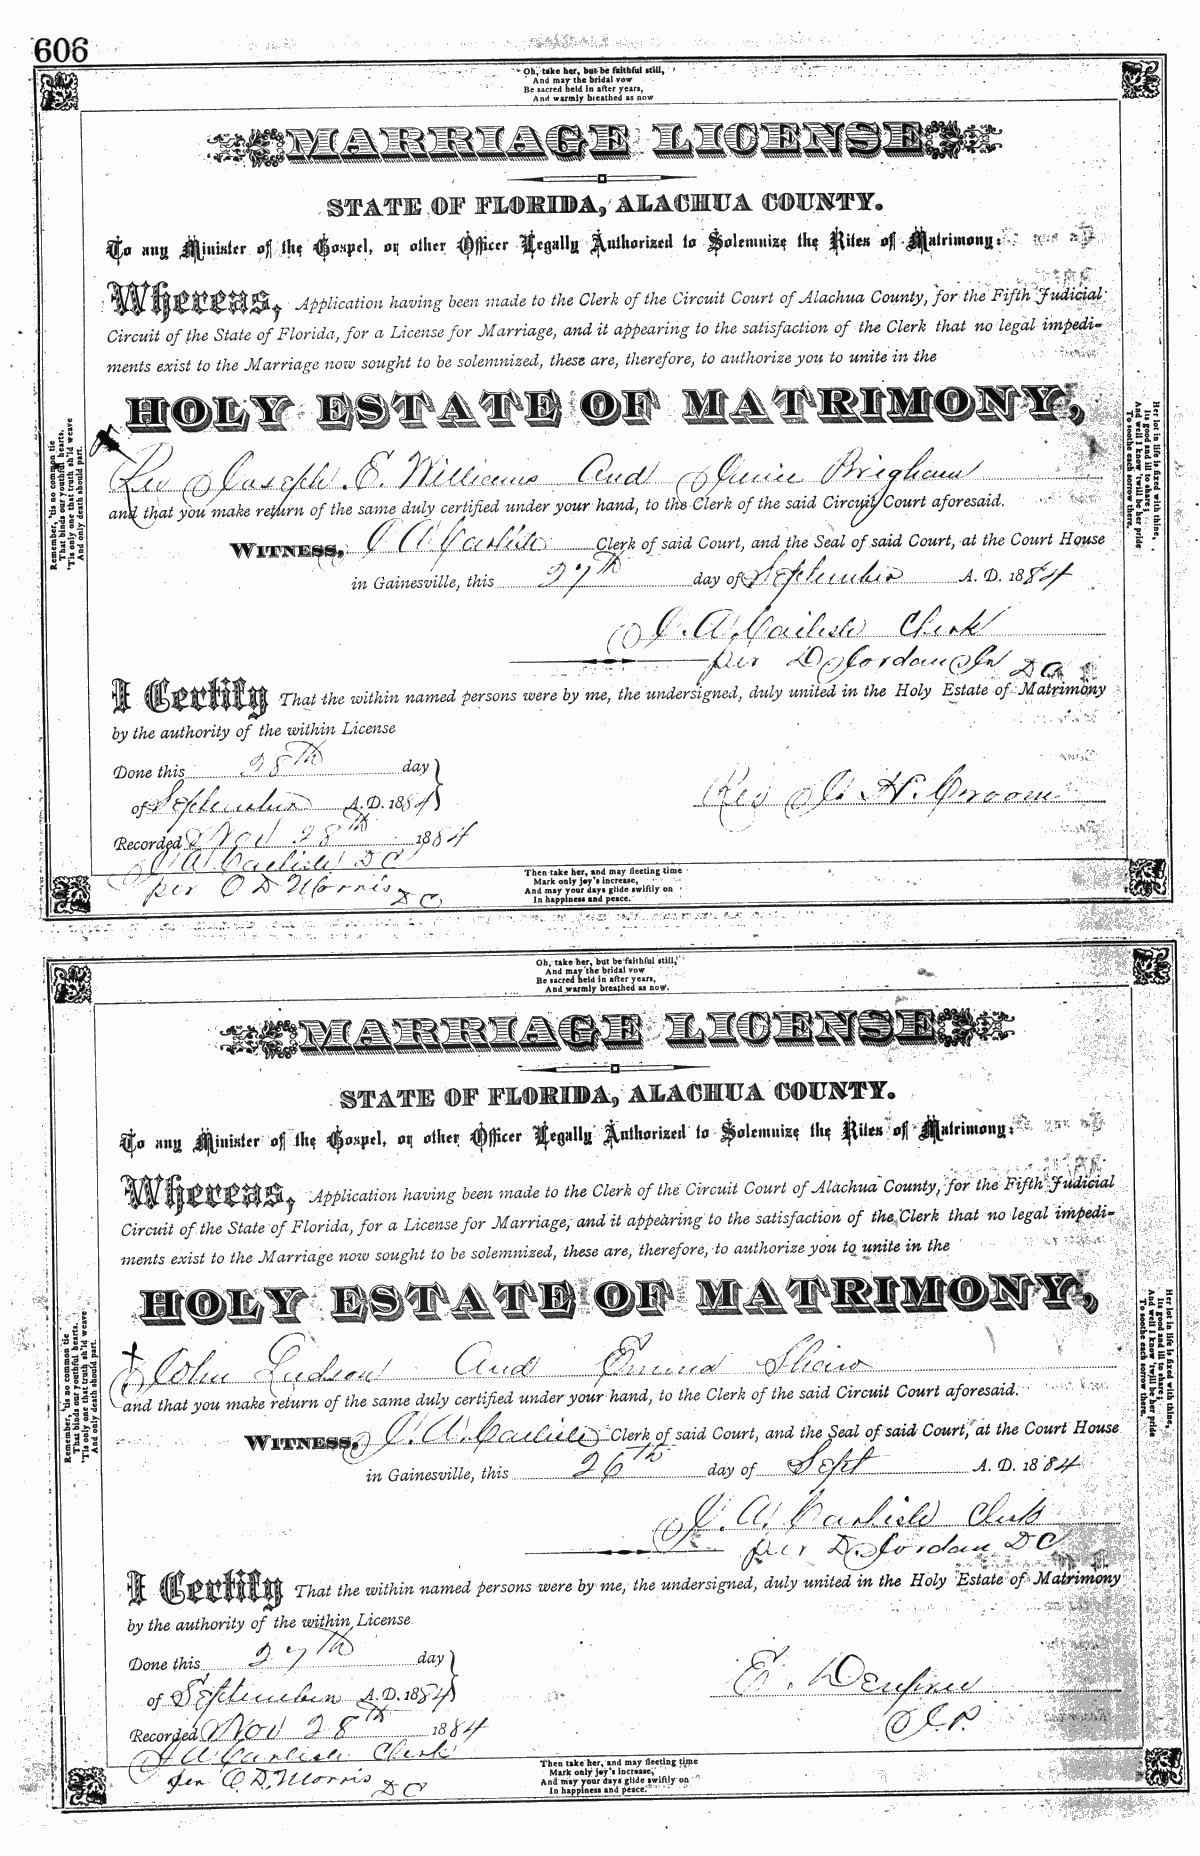 606
Oh, take her, but be faithful still,
And may the bridal vow
Be sacred held in after years,
And warmly breathed as now
MARRIAGE LICENSE
STATE OF FLORIDA, ALACHUA COUNTY.
To any Minister of the Gospel, or other Officer Legally Authorized to Solemnize the Rites of Matrimony:
Whereas, Application having been made to the Clerk of the Circuit Court of Alachua County, for the Fifth Judicial
Circuit of the State of Florida, for a License for Marriage, and it appearing to the satisfaction of the Clerk that no legal impedi-
ments exist to the Marriage now sought to be solemnized, these are, therefore, to authorize you to unite in the
HOLY ESTATE OF MATRIMONY,
Rev Joseph E. Williams And Brigham
and that you make return of the same duly certified under your hand, to the Clerk of the said Circuit Court aforesaid.
WITNESS, J A Carlisle Clerk of said Court, and the Seal of said Court, at the Court House
in Gainesville, this 27th day of September A. D. 1884
J. A. Carlisle Clerk
per D Jordan Jr DC
I Certify That the within named persons were by me, the undersigned, duly united in the Holy Estate of Matrimony
by the authority of the within License
Done this 28th day
of September A. D. 1884
Rev J. H. Croom
Recorded Nov 28th 1884
J A Carlisle DC
per C D Morris DC
Remember, 'tis no common tie
That binds our youthful hearts.
'Tis only one that truth sh'ld weave
And only death should part.
Her lot in life is fixed with thine,
Its good and ill to share;
And well I know 'twill be her pride
To soothe each sorrow there.
Then take her, and may fleeting time
Mark only joy's increase,
And may your days glide swiftly on
In happiness and peace.
Oh, take her, but be faithful still,
And may the bridal vow
Be sacred held in after years,
And warmly breathed as now.
MARRIAGE LICENSE
STATE OF FLORIDA, ALACHUA COUNTY.
To any Minister of the Gospel, or other Officer Legally Authorized to Solemnize the Rites of Matrimony:
Whereas, Application having been made to the Clerk of the Circuit Court of Alachua County, for the Fifth Judicial
Circuit of the State of Florida, for a License for Marriage, and it appearing to the satisfaction of the Clerk that no legal impedi-
ments exist to the Marriage now sought to be solemnized, these are, therefore, to authorize you to unite in the
HOLY ESTATE OF MATRIMONY,
John Judson And Shaw
and that you make return of the same duly certified under your hand, to the Clerk of the said Circuit Court aforesaid.
WITNESS, J. A. Carlisle Clerk of said Court, and the Seal of said Court, at the Court House
in Gainesville, this 26th day of Sept A. D. 1884
J. A. Carlisle Clerk
per D. Jordan DC
I Certify That the within named persons were by me, the undersigned, duly united in the Holy Estate of Matrimony
by the authority of the within License
Done this 27th day
of September A. D. 1884
E.
J.P.
Recorded Nov 28th 1884
J A Carlisle Clerk
per C D. Morris DC
Remember, 'tis no common tie
That binds our youthful hearts.
'Tis only one that truth sh'ld weave
And only death should part.
Her lot in life is fixed with thine,
Its good and ill to share;
And well I know 'twill be her pride
To soothe each sorrow there.
Then take her, and may fleeting time
Mark only joy's increase,
And may your days glide swiftly on
In happiness and peace.